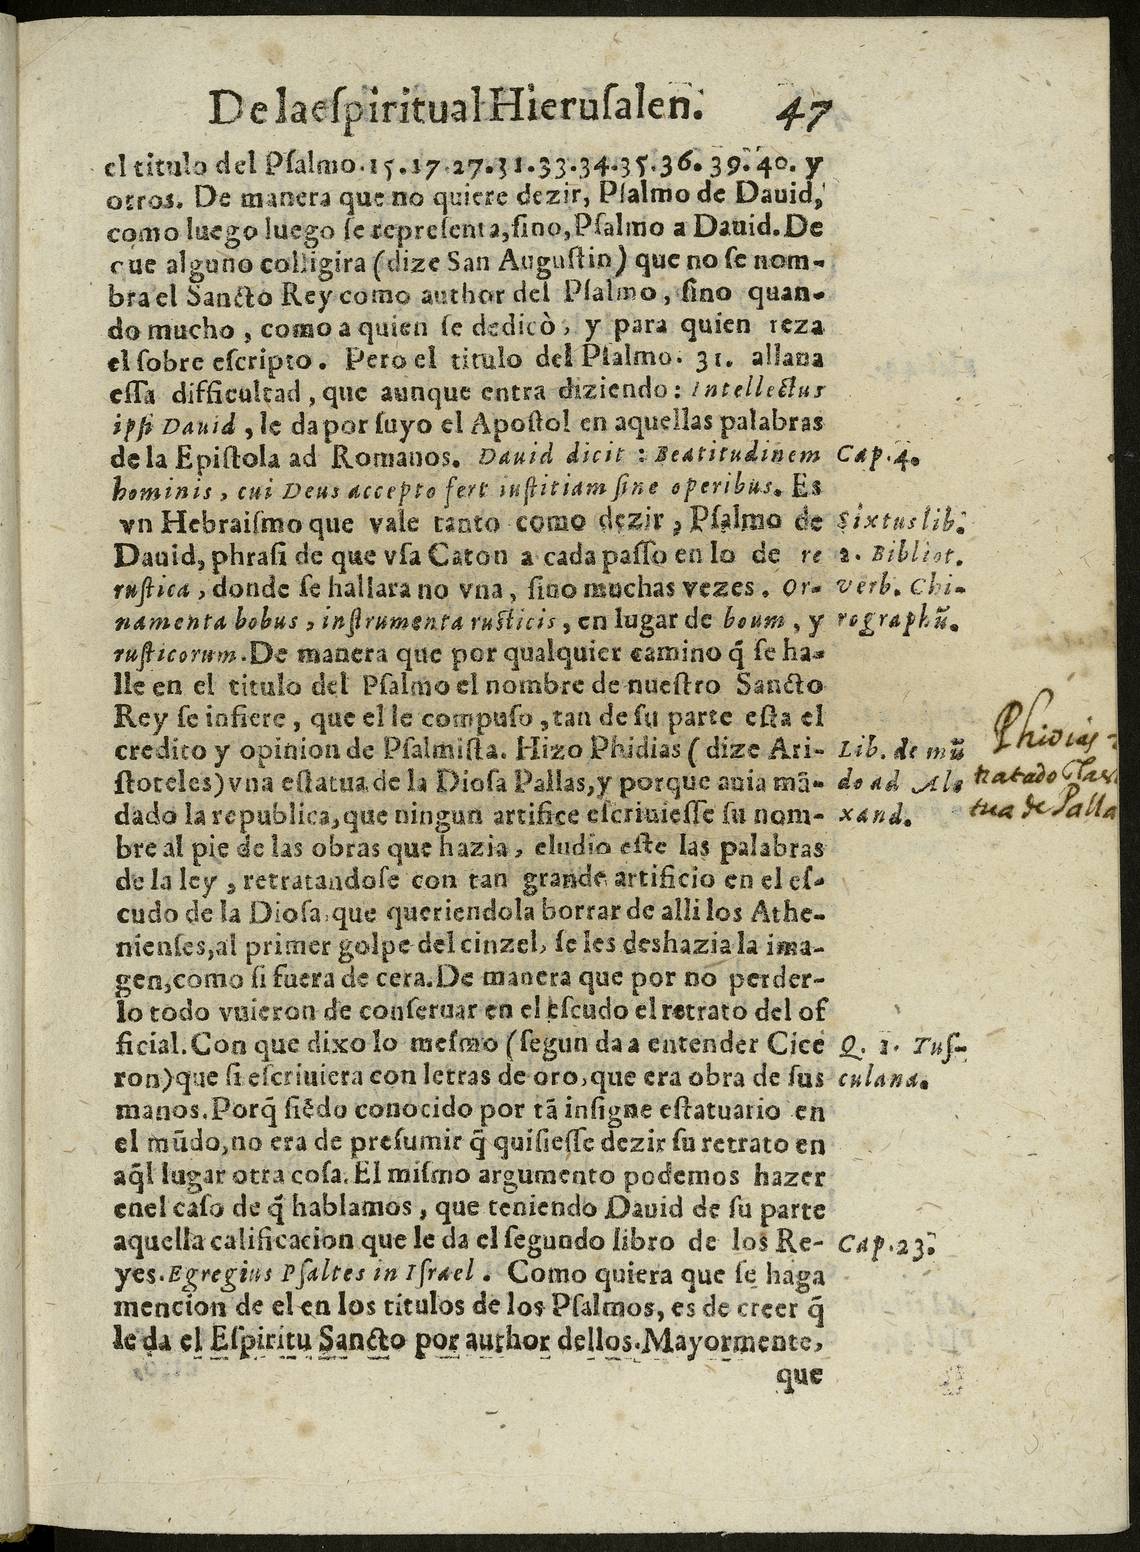 De la eſpiritual Hieruſalen. 47
el titulo del Pſalmo. 15. 17. 27. 31. 33. 34. 35. 36. 39. 40. y
otros. De manera que no quiere dezir, Pſalmo de Dauid,
como luego luego ſe repreſenta, ſino, Pſalmo a Dauid. De
que alguno colligira (dize San Auguſtin) que no ſe nom-
bra el Sancto Rey como author del Pſalmo, ſino quan-
do mucho, como a quien ſe dedicò, y para quien reza
el ſobre eſcripto. Pero el titulo del Pſalmo. 31. allana
eſſa difficultad, que aunque entra diziendo: Intellectus
ipſi Dauid, le da por ſuyo el Apoſtol en aquellas palabras
de la Epiſtola ad Romanos. Dauid dicit: Beatitudinem
hominis, cui Deus accepto fert iuſtitiam ſine operibus. Es
vn Hebraiſmo que vale tanto como dezir, Pſalmo de
Dauid, phraſi de que vſa Caton a cada paſſo en lo de re
ruſtica, donde ſe hallara no vna, ſino muchas vezes. Or-
namenta bobus, inſtrumenta ruſticis, en lugar de boum, y
ruſticorum. De manera que por qualquier camino q̃ ſe ha-
lle en el titulo del Pſalmo el nombre de nueſtro Sancto
Rey ſe infiere, que el le compuſo, tan de ſu parte eſta el
credito y opinion de Pſalmiſta. Hizo Phidias (dize Ari-
ſtoteles) vna eſtatua de la Dioſa Pallas, y porque auia mã-
dado la republica, que ningun artifice eſcriuieſſe ſu nom-
bre al pie de las obras que hazia, eludio eſte las palabras
de la ley, retratandoſe con tan grande artificio en el eſ-
cudo de la Dioſa, que queriendola borrar de alli los Athe-
nienſes, al primer golpe del cinzel, ſe les deshazia la ima-
gen, como ſi fuera de cera. De manera que por no perder-
lo todo vuieron de conſeruar en el eſcudo el retrato del of
ficial. Con que dixo lo meſmo (ſegun da a entender Cice
ron) que ſi eſcriuiera con letras de oro, que era obra de ſus
manos. Porq̃ ſiẽdo conocido por tã inſigne eſtatuario en
el mũdo, no era de preſumir q̃ quiſieſſe dezir ſu retrato en
aq̃l lugar otra coſa. El miſmo argumento podemos hazer
enel caſo de q̃ hablamos, que teniendo Dauid de ſu parte
aquella calificacion que le da el ſegundo libro de los Re-
yes. Egregius Pſaltes in Iſrael. Como quiera que ſe haga
mencion de el en los titulos de los Pſalmos, es de creer q̃
le da el Eſpiritu Sancto por author dellos. Mayormente,
que
Cap. 4.
Sixtus lib.
2. Bibliot.
verb. Chi-
rographũ.
Lib. de mũ
do ad Ale
xand.
Q. 1. Tuſ-
culana.
Cap. 23.
Phidias
tratado
tua de Palla